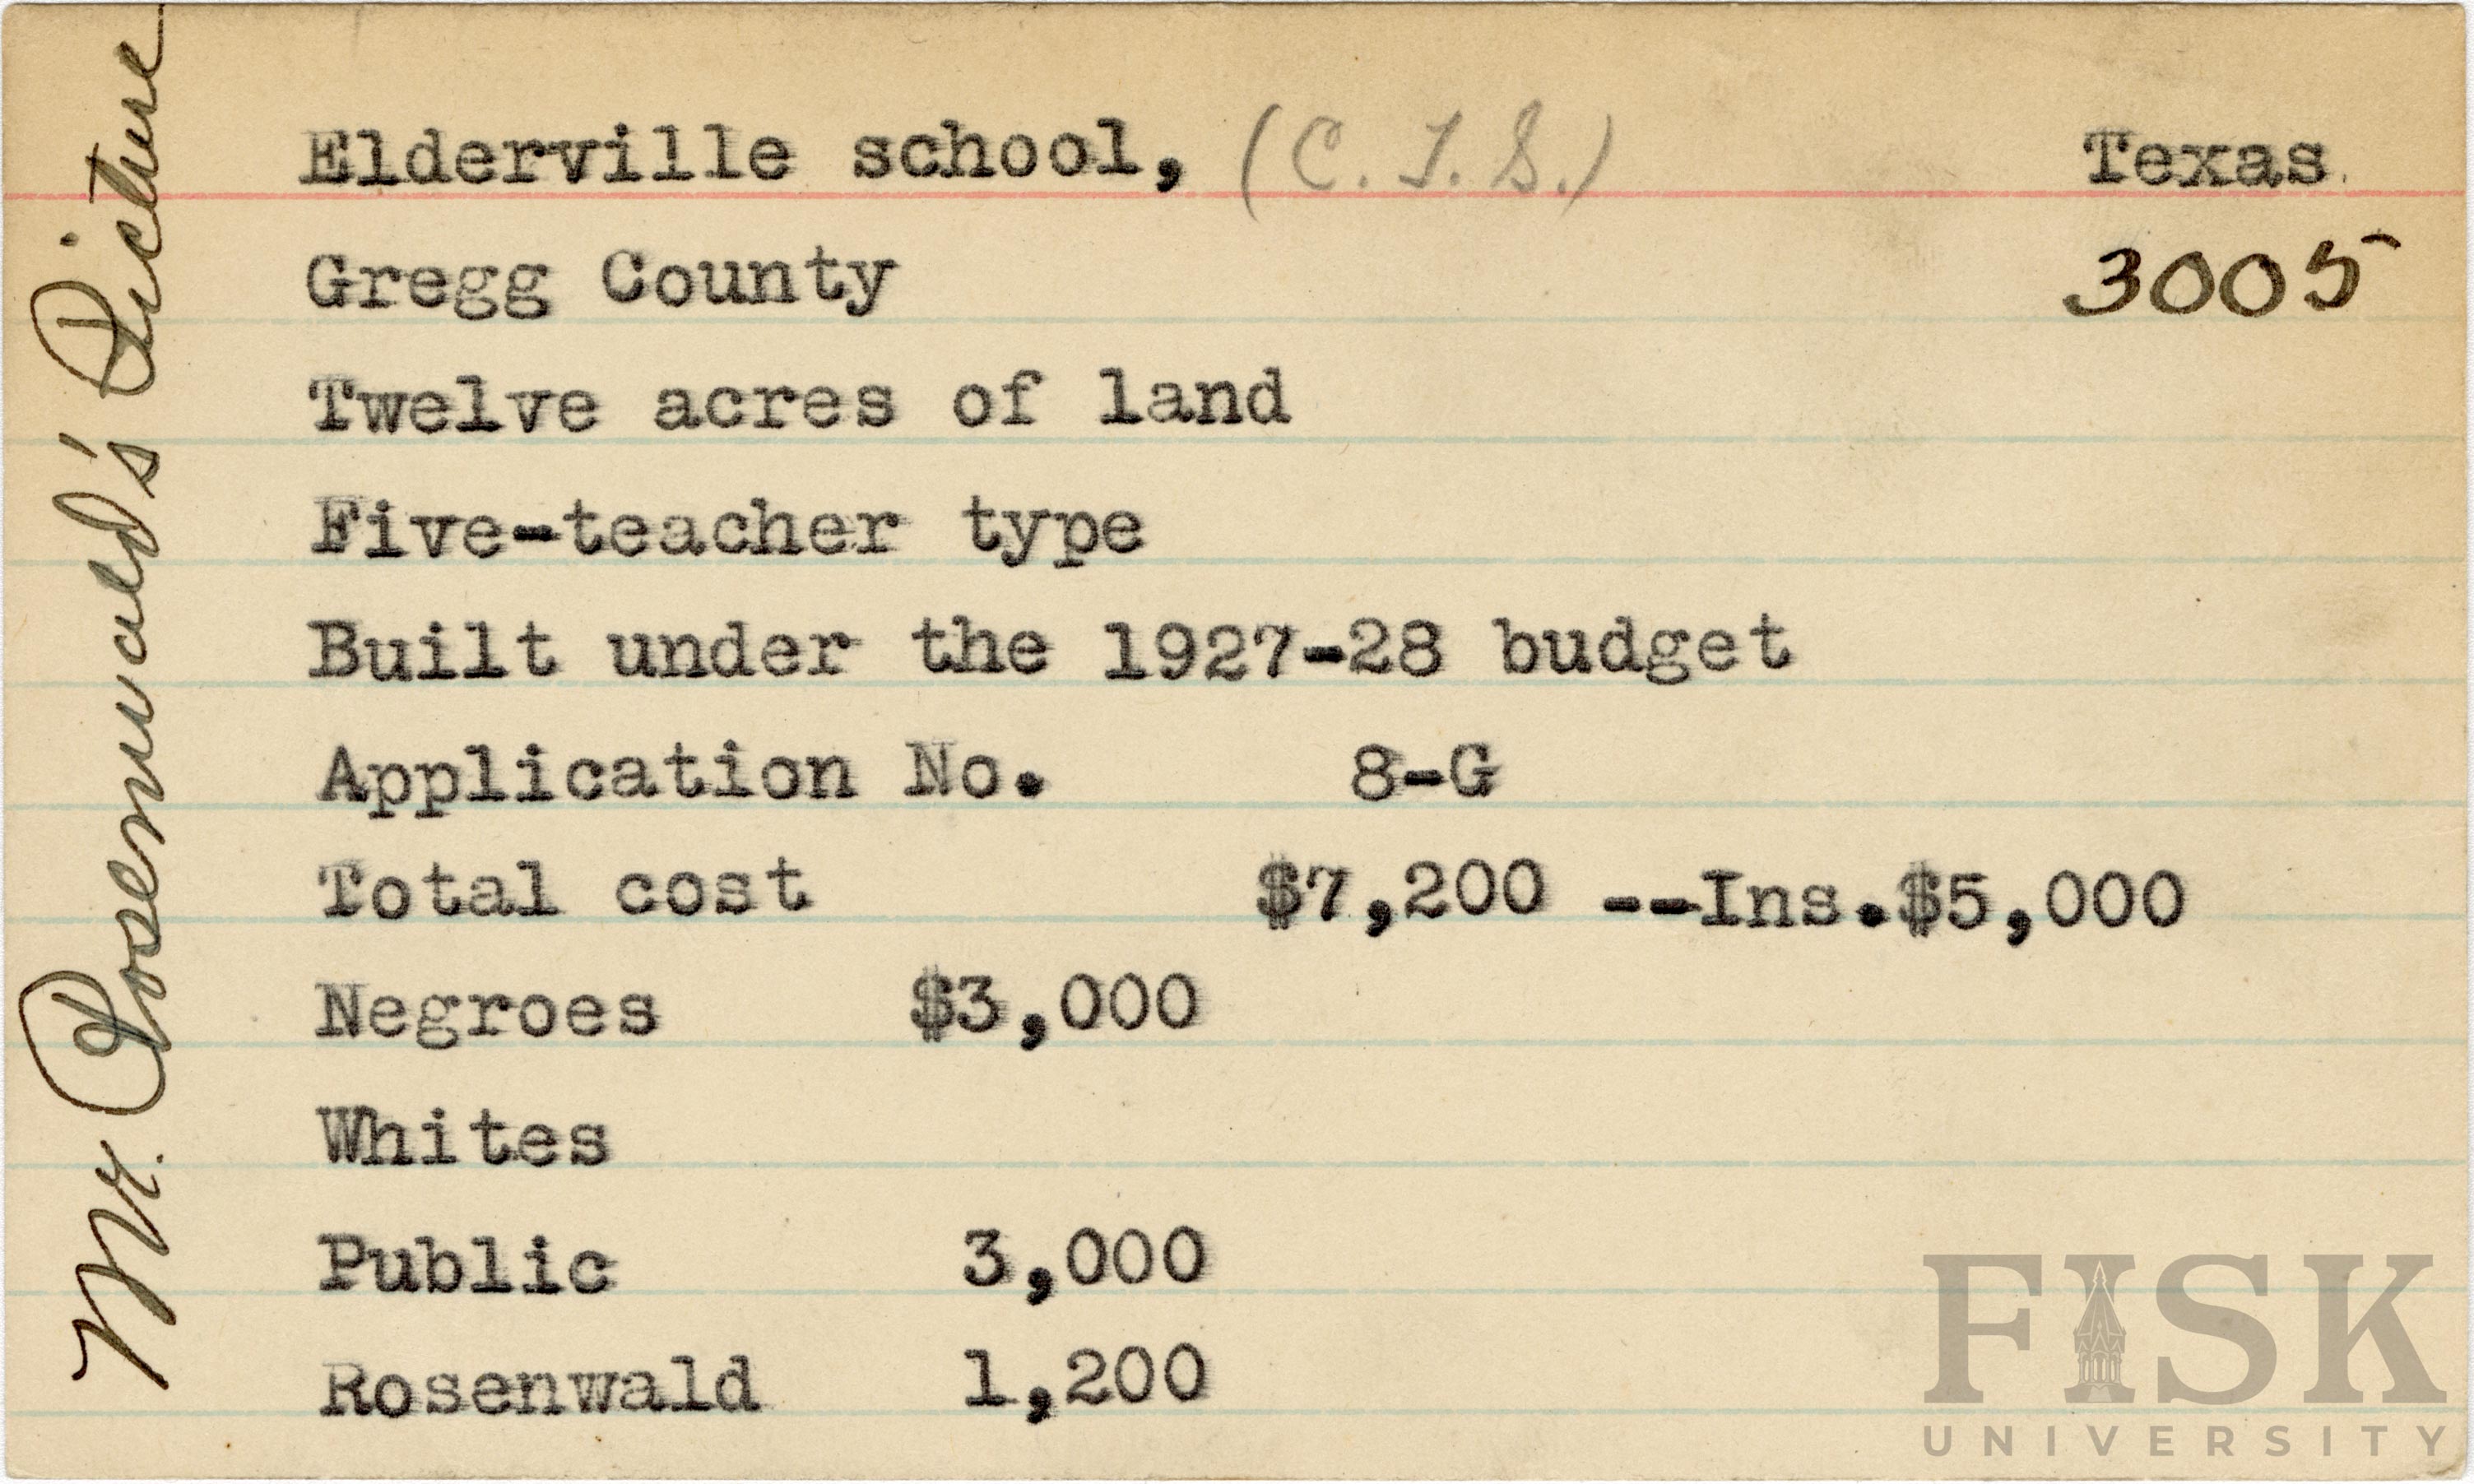 Elderville school, (C. T. S.) Texas.
3005
Gregg County
Twelve acres of land
Five-teacher type
Built under the 1927-28 budget
Application No. 8-G
Total cost $7,200 --Ins.$5,000
Negroes $3,000
Whites
Public 3,000
Rosenwald 1,200
Mr. Rosenwald's Picture
FISK
UNIVERSITY